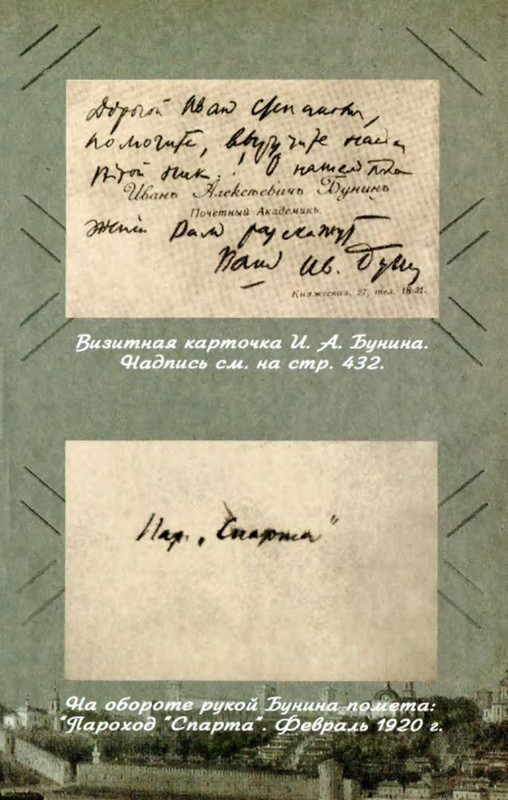 Дорогой Иван Степанович,
помогите, выручите нас
Иванъ Алексѣевичъ Бунинъ
Почетный Академикъ.
Вам расскажут
Ваш Ив. Бунин
Княжеская, 27, тел. 18-21.
Визитная карточка И. А. Бунина.
Надпись см. на стр. 432.
Пар. „Спарта"
На обороте рукой Бунина помета:
"Пароход "Спарта". Февраль 1920 г.